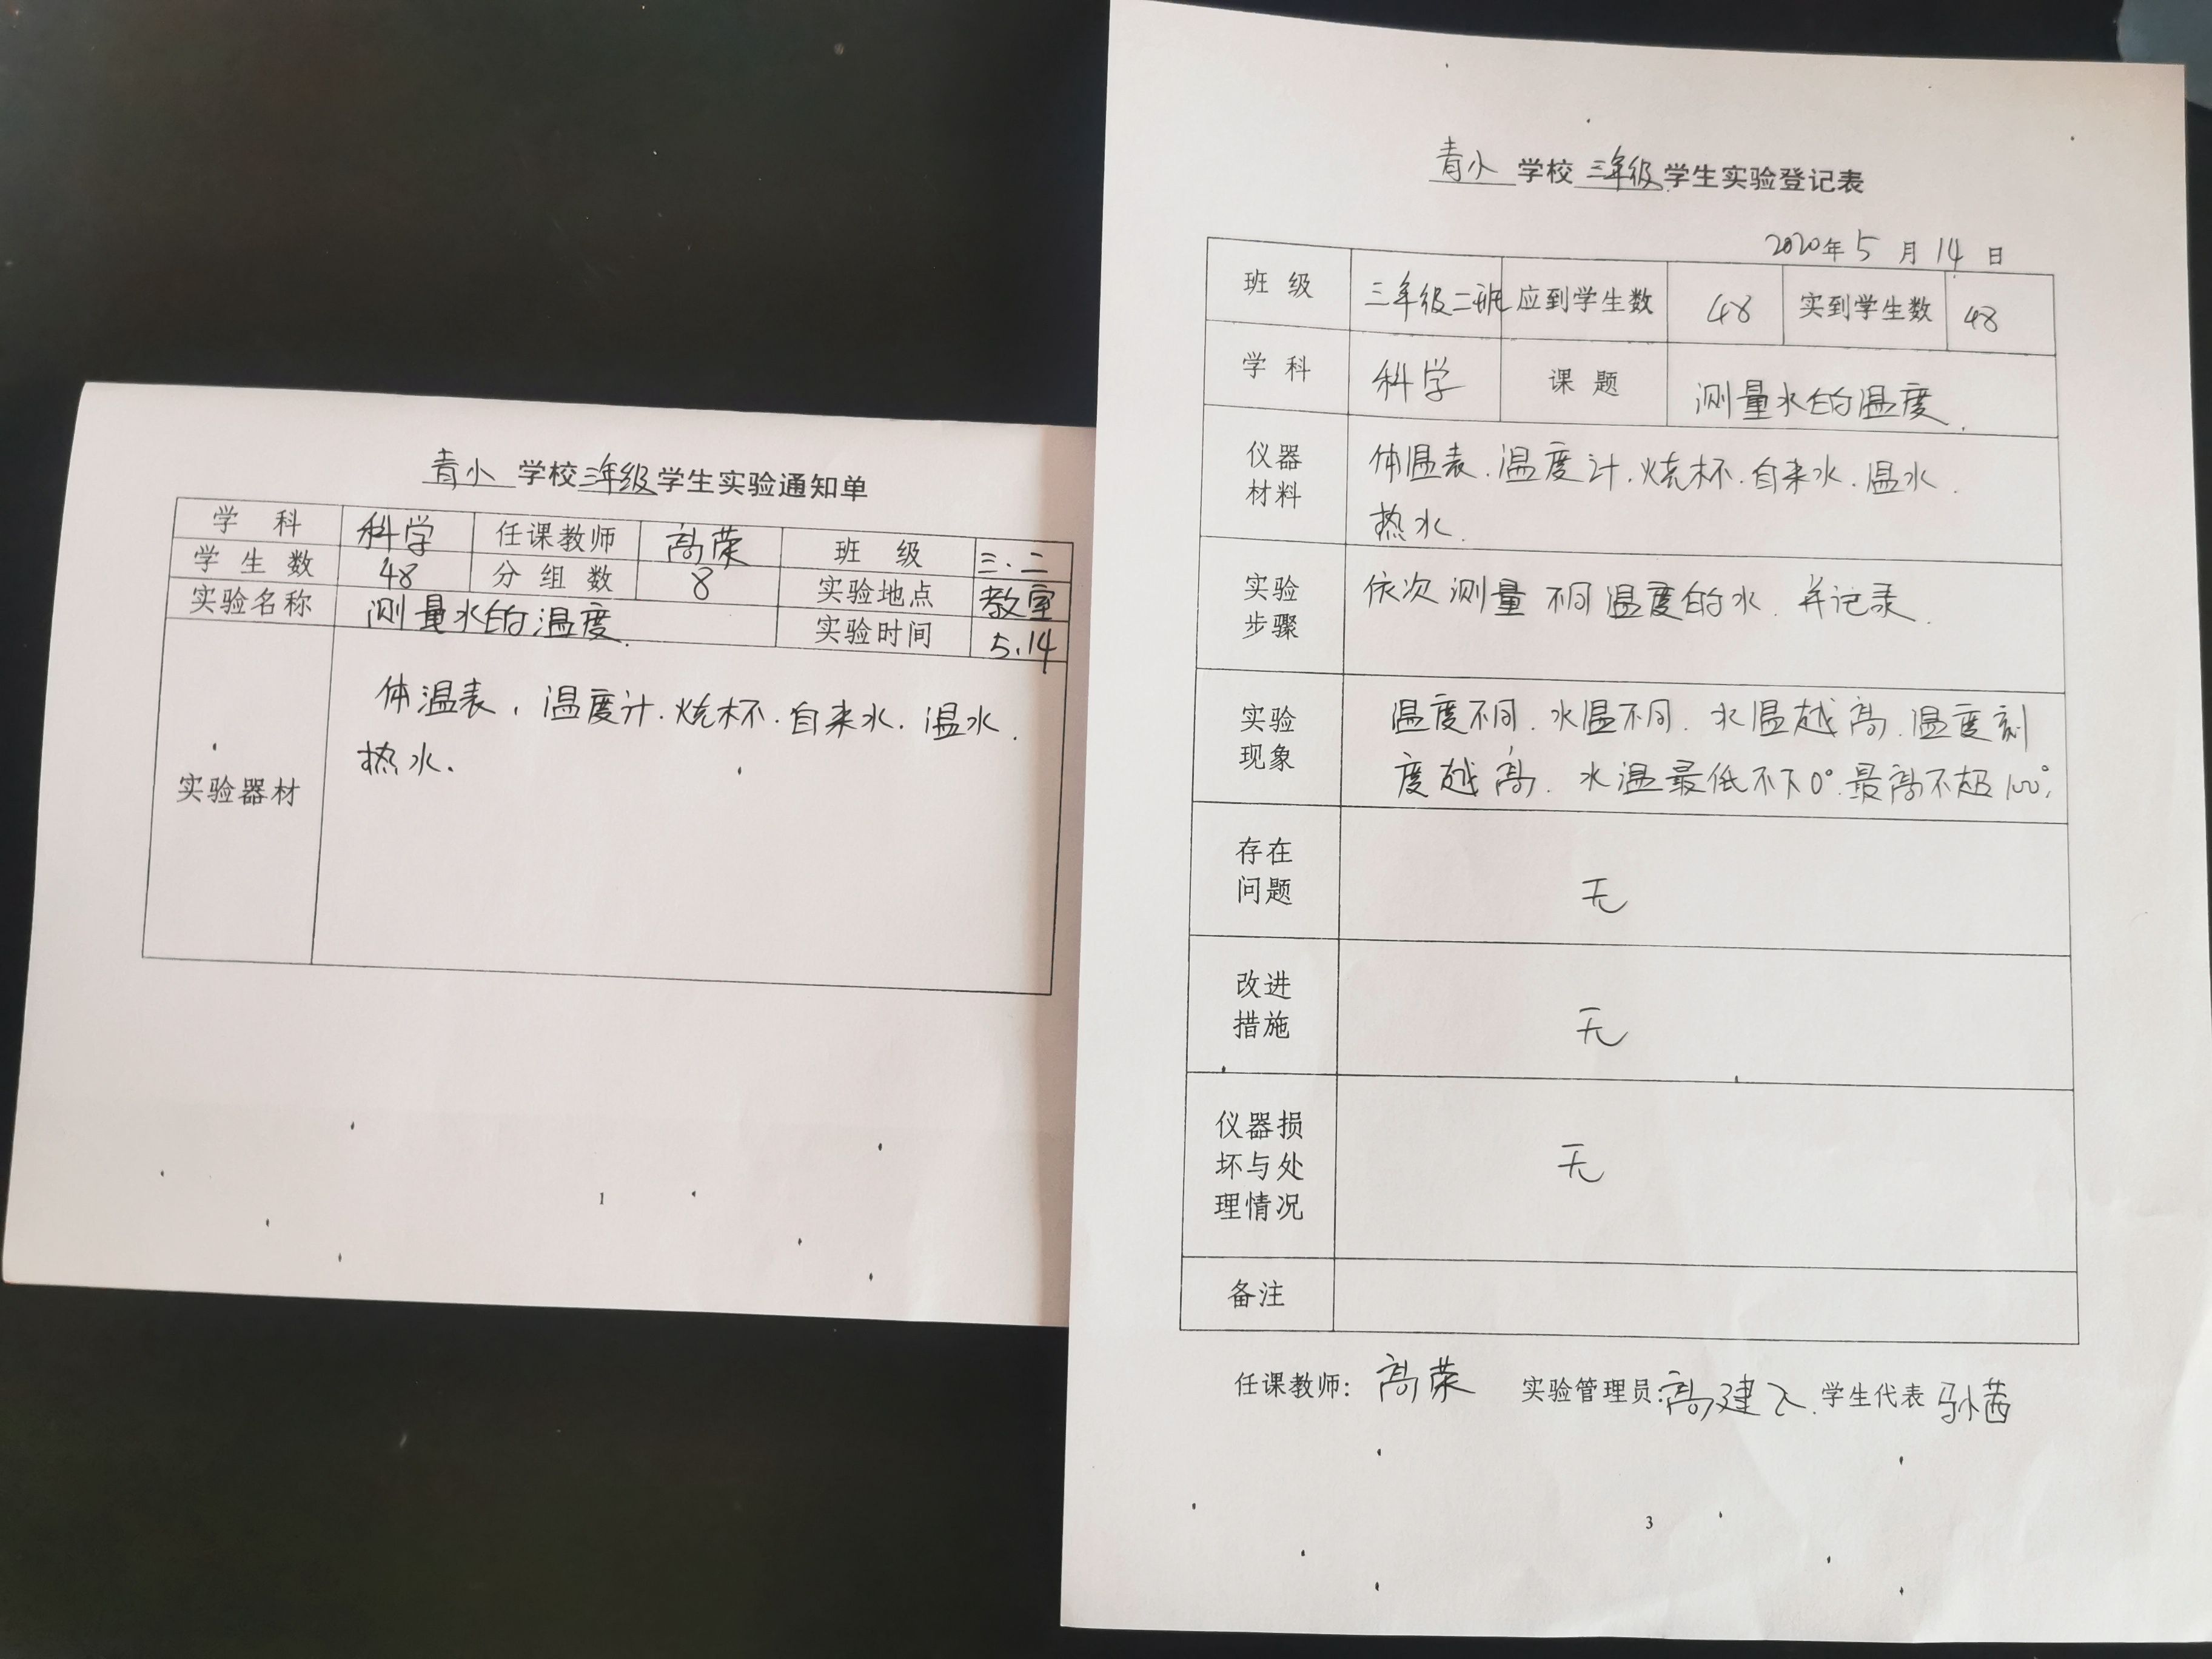 青小 学校 三年级 学生实验通知单
学 科 科学 任课教师 高荣 班 级 三.二
学 生 数 48 分 组 数 8 实验地点 教室
实验名称 测量水的温度. 实验时间 5.14
实验器材
体温表, 温度计. 烧杯. 自来水. 温水.
热水.
1
青小 学校 三年级 学生实验登记表
2020年 5 月 14 日
班 级 三年级二班 应到学生数 48 实到学生数 48
学 科 科学 课 题 测量水的温度.
仪器
材料
体温表. 温度计. 烧杯. 自来水. 温水.
热水.
实验
步骤
依次测量不同温度的水. 并记录.
实验
现象
温度不同. 水温不同. 水温越高. 温度刻
度越高. 水温最低不下0°. 最高不超100°.
存在
问题
无
改进
措施
无
仪器损
坏与处
理情况
无
备注
任课教师: 高荣 实验管理员: 高建飞. 学生代表 孙茜
3